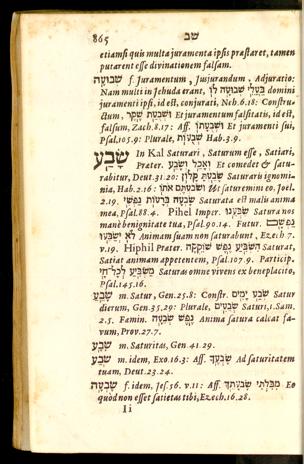 865 שב
etiamsi quis multa juramenta ipsis præstaret, tamen
putarent esse divinationem falsam.
שבועה f. Juramentum, Jusjurandum, Adjuratio:
Nam multi in Jehuda erant, בעלי שבועה לו domini
juramenti ipsi, id est, conjurati, Neh. 6. 18: Constru-
ctum, ושבועת שקר Et juramentum falsitatis, id est,
falsum, Zach. 8. 17: Aff. Et juramenti sui,
Psal. 105. 9: Plurale, שבועות Hab. 3. 9.
שָׂבַע In Kal Saturari, Saturum esse, Satiari,
Præter. ואכל ושבע Et comedet & satu-
rabitur, Deut. 31. 20: שבעת קלון Saturaris ignomi-
nia, Hab. 2. 16: ושבעתם אתו & saturemini eo, Joel.
2. 19. שבעה ברעות נפשי Saturata est malis anima
mea, Psal. 88. 4. Pihel Imper. שבענו Satura nos
mane benignitate tua, Psal. 90. 14. Futur. נפשם
לא ישבעו Animam suam non saturabunt, Ezech. 7.
v. 19. Hiphil Præter. השביע נפש שוקקה Saturat,
Satiat animam appetentem, Psal. 107. 9. Particip.
משביע לכל חי Saturas omne vivens ex beneplacito,
Psal. 145. 16.
שָׂבֵעַ m. Satur, Gen. 25. 8: Constr. שבע ימים Satur
dierum, Gen. 35. 29: Plurale, שבעים Saturi, 1. Sam.
2. 5. Fæmin. נפש שבעה Anima satura calcat fa-
vum, Prov. 27. 7.
שָׂבָע m. Saturitas, Gen. 41. 29.
שֹׂבַע m. idem, Exo. 16. 3: Aff. שבעך Ad saturitatem
tuam, Deut. 23. 24.
שבעה f. idem, Jes. 56. v. 11: Aff. מבלתי שבעתך Eo
quod non esset satietas tibi, Ezech. 16. 28.
Ii